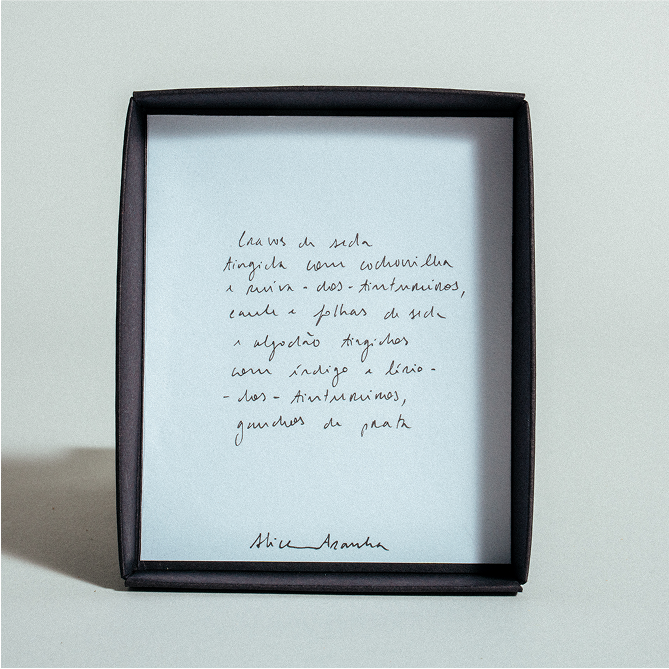 Cravos de seda
tingida com cochonilha
e ruiva-dos-tintureiros,
caule e folhas de seda
e algodão tingidos
com índigo e lírio-
-dos-tintureiros,
ganchos de prata
Alice Aranha